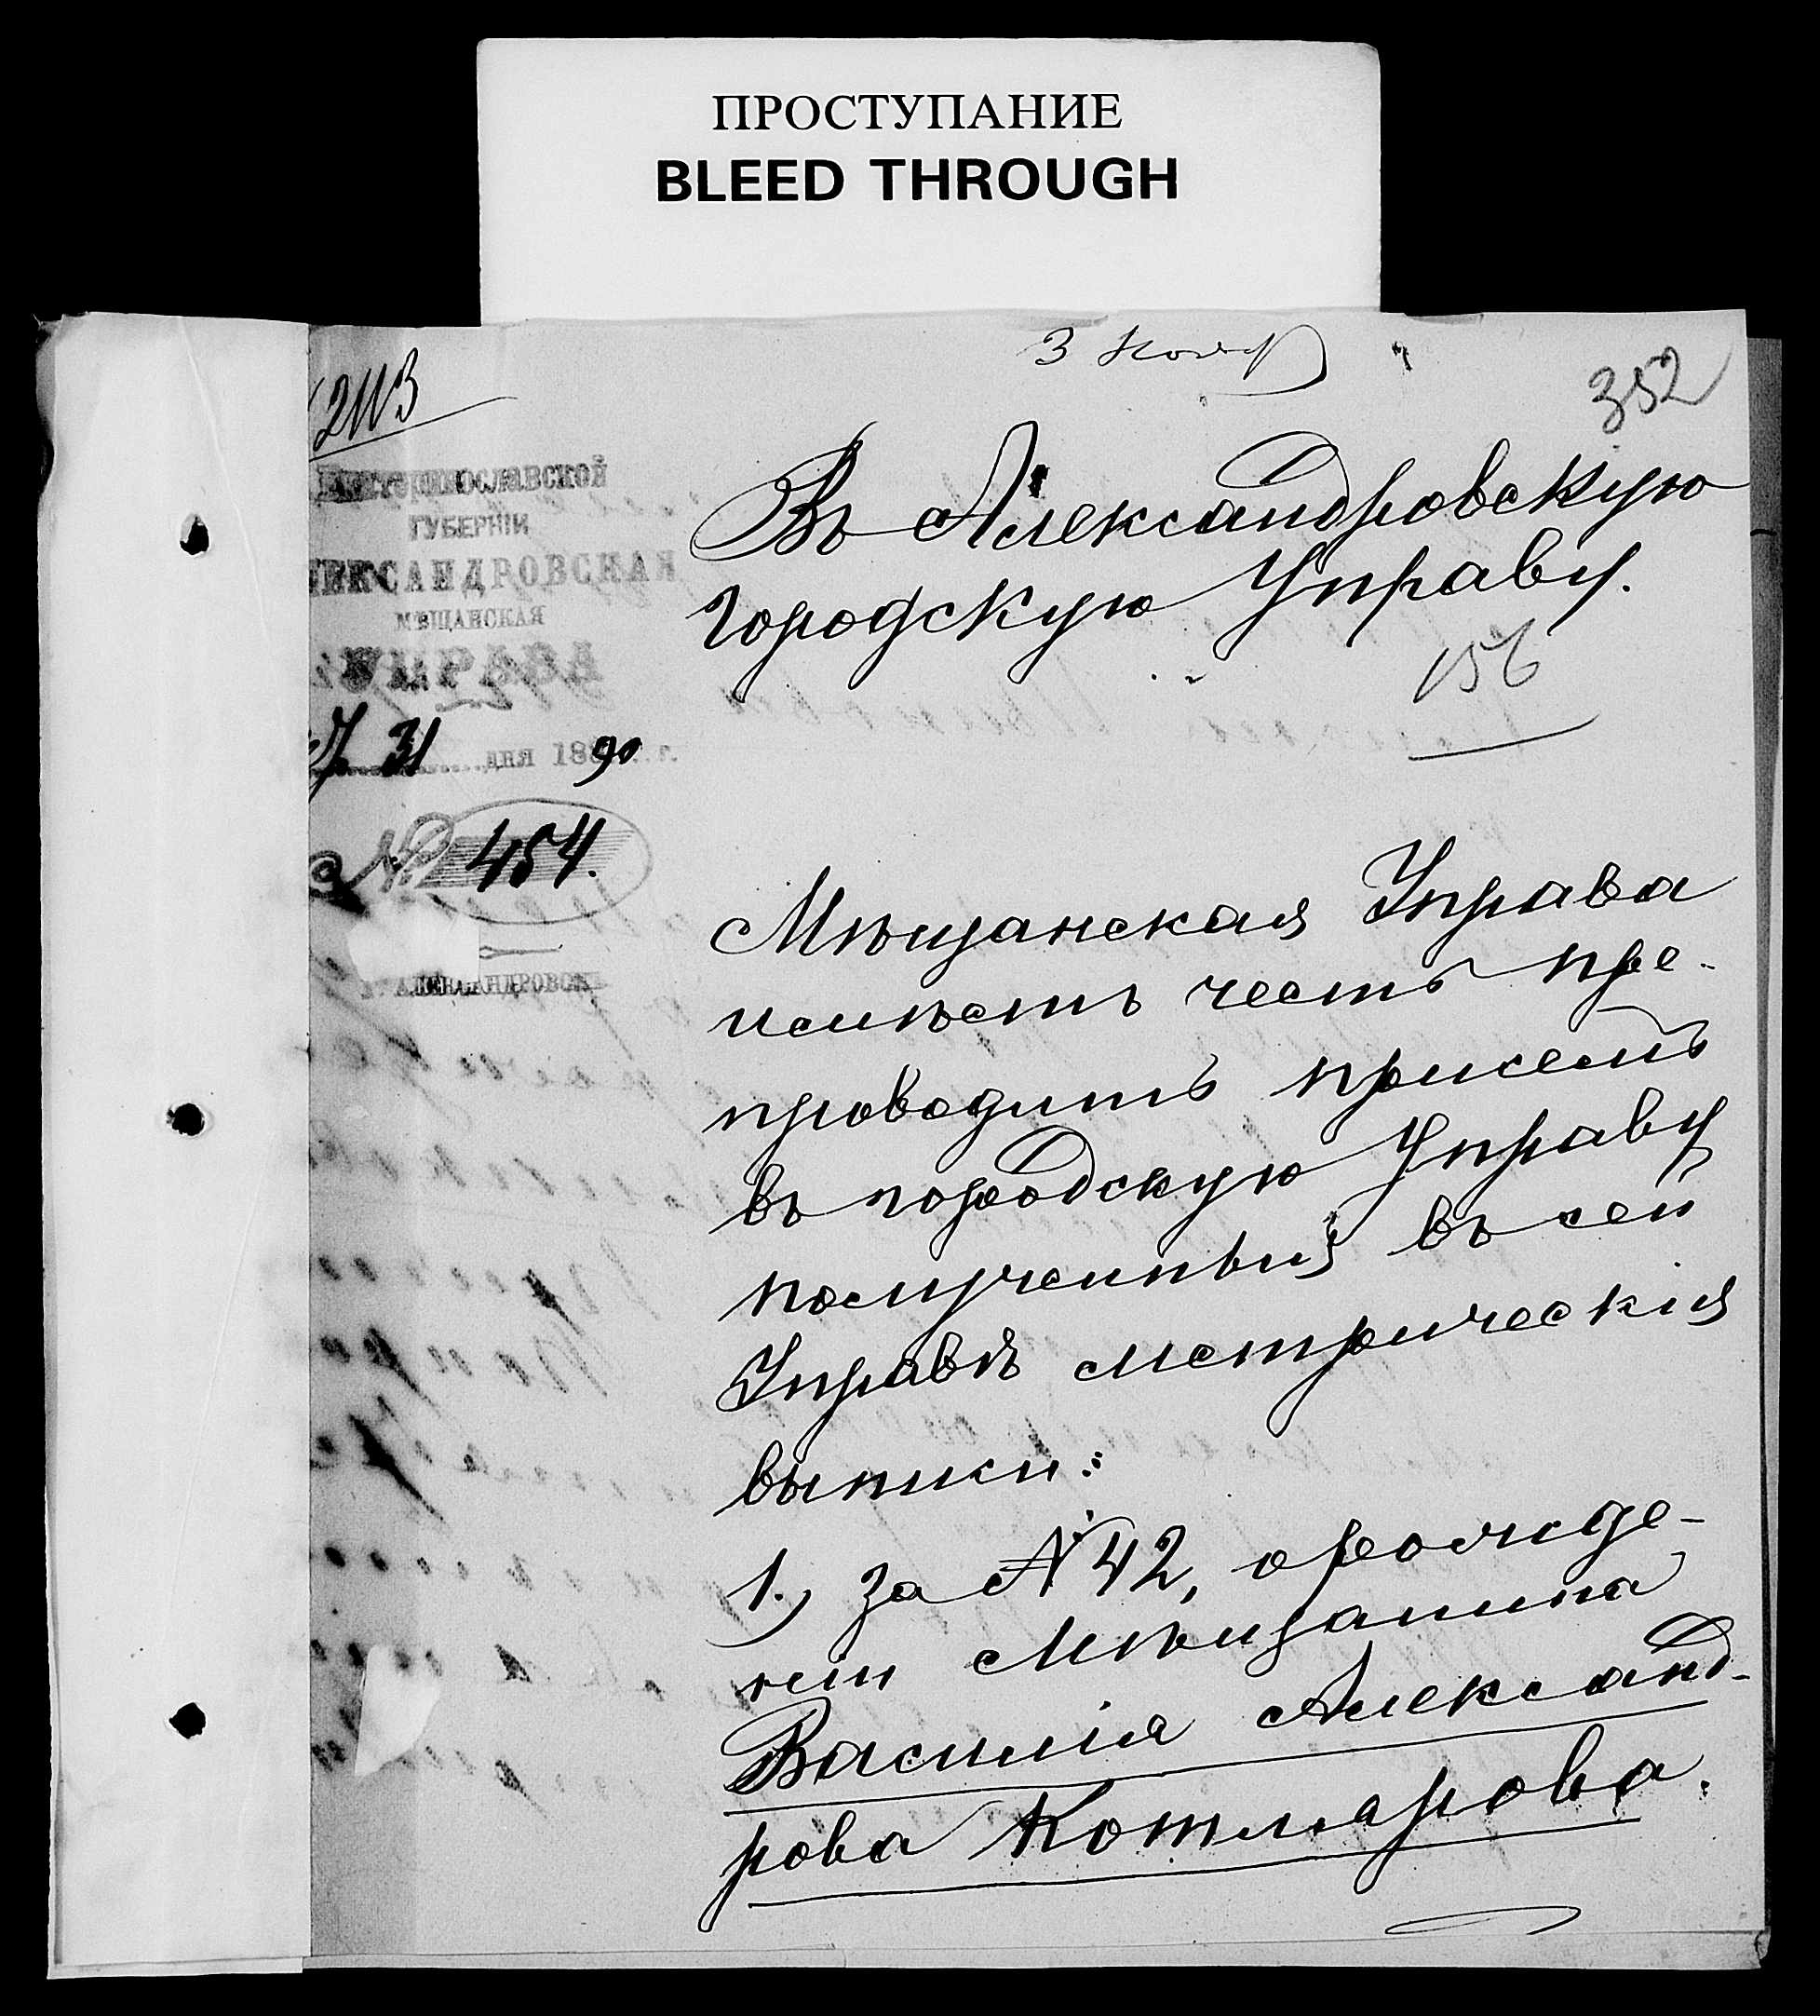 ПРОСТУПАНИЕ
BLEED THROUGH
3 Нояб
352
2113
Екатеринославской
ГУБЕРНІИ
ЛЕКСАНДРОВСКАЯ
МѢЩАНСКАЯ
УПРАВА
31 дня 1890 г.
№ 454.
Г. АЛЕКСАНДРОВСКЪ
Въ Александровскую
городскую Управу.
156
Мѣщанская Управа
имѣетъ честь пре-
проводить при семъ
въ городскую Управу
полученныя въ сей
Управѣ метрическія
выписи:
1.) за № 42, о рожде-
ніи мѣщанина
Василія Александ-
рова Котлярова.